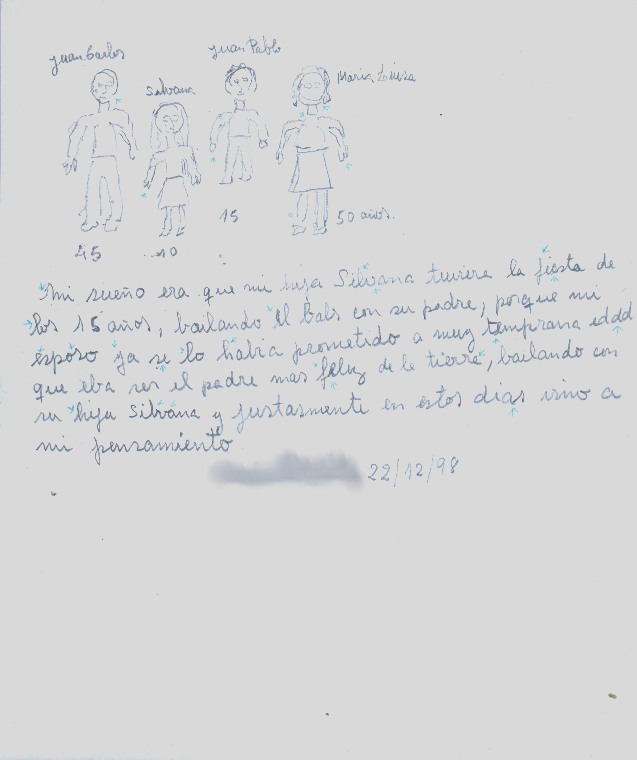 Juan Carlos
Silvana
Juan Pablo
Maria Luisa
45
10
15
50 años.
Mi sueño era que mi hija Silvana tuviera la fiesta de
los 15 años, bailando el bals con su padre, porque mi
esposo ya se lo habia prometido a muy temprana edad
que iba ser el padre mas feliz de la tierra, bailando con
su hija Silvana y justasmente en estos dias vino a
mi pensamiento
22/12/98